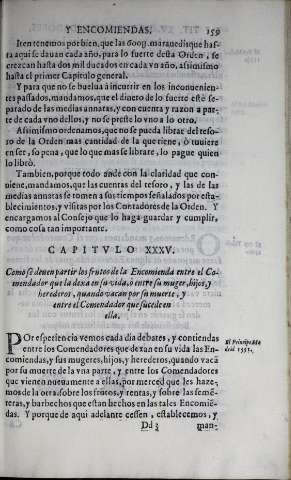 Y ENCOMIENDAS. 159
Iten tenemos por bien, que las 600y. marauedis que has-
ta aqui se dauan cada año, para lo fuerte desta Orden, se
crezcan hasta dos mil ducados en cada vn año, assimismo
hasta el primer Capitulo general.
Y para que no se buelua a incurrir en los inconuenien-
tes passados, mandamos, que el dinero de lo fuerte esté se-
parado de las medias annatas, y con cuenta y razon a par-
te de cada vno dellos, y no se preste lo vno a lo otro.
Assimismo ordenamos, que no se pueda librar del teso-
ro de la Orden mas cantidad de la que tiene, ò tuuiere
en ser, so pena, que lo que mas se librare, lo pague quien
lo librò.
Tambien, porque todo ande con la claridad que con-
uiene, mandamos, que las cuentas del tesoro, y las de las
medias annatas se tomen a sus tiempos señalados por esta-
blecimientos, y visitas por los Contadores de la Orden. Y
encargamos al Consejo que lo haga guardar y cumplir,
como cosa tan importante.
CAPITVLO XXXV.
Como se deuen partir los frutos de la Encomienda entre el Co-
mendador que la dexa en su vida, ò entre su muger, hijos, y
herederos, quando vacan por su muerte, y
entre el Comendador que sucede en
ella.
POr esperiencia vemos cada dia debates, y contiendas
entre los Comendadores que dexan en su vida las En-
comiendas, y sus mugeres, hijos, y herederos, quando vacã
por su muerte de la vna parte, y entre los Comendadores
que vienen nueuamente a ellas, por merced que les haze-
mos de la otra, sobre los frutos, y rentas, y sobre las semẽ-
teras, y barbechos que estan hechos en las tales Encomiẽ-
das. Y porque de aqui adelante cessen, establecemos, y
El Principe. Ma
drid 1552.
Dd 3 man-